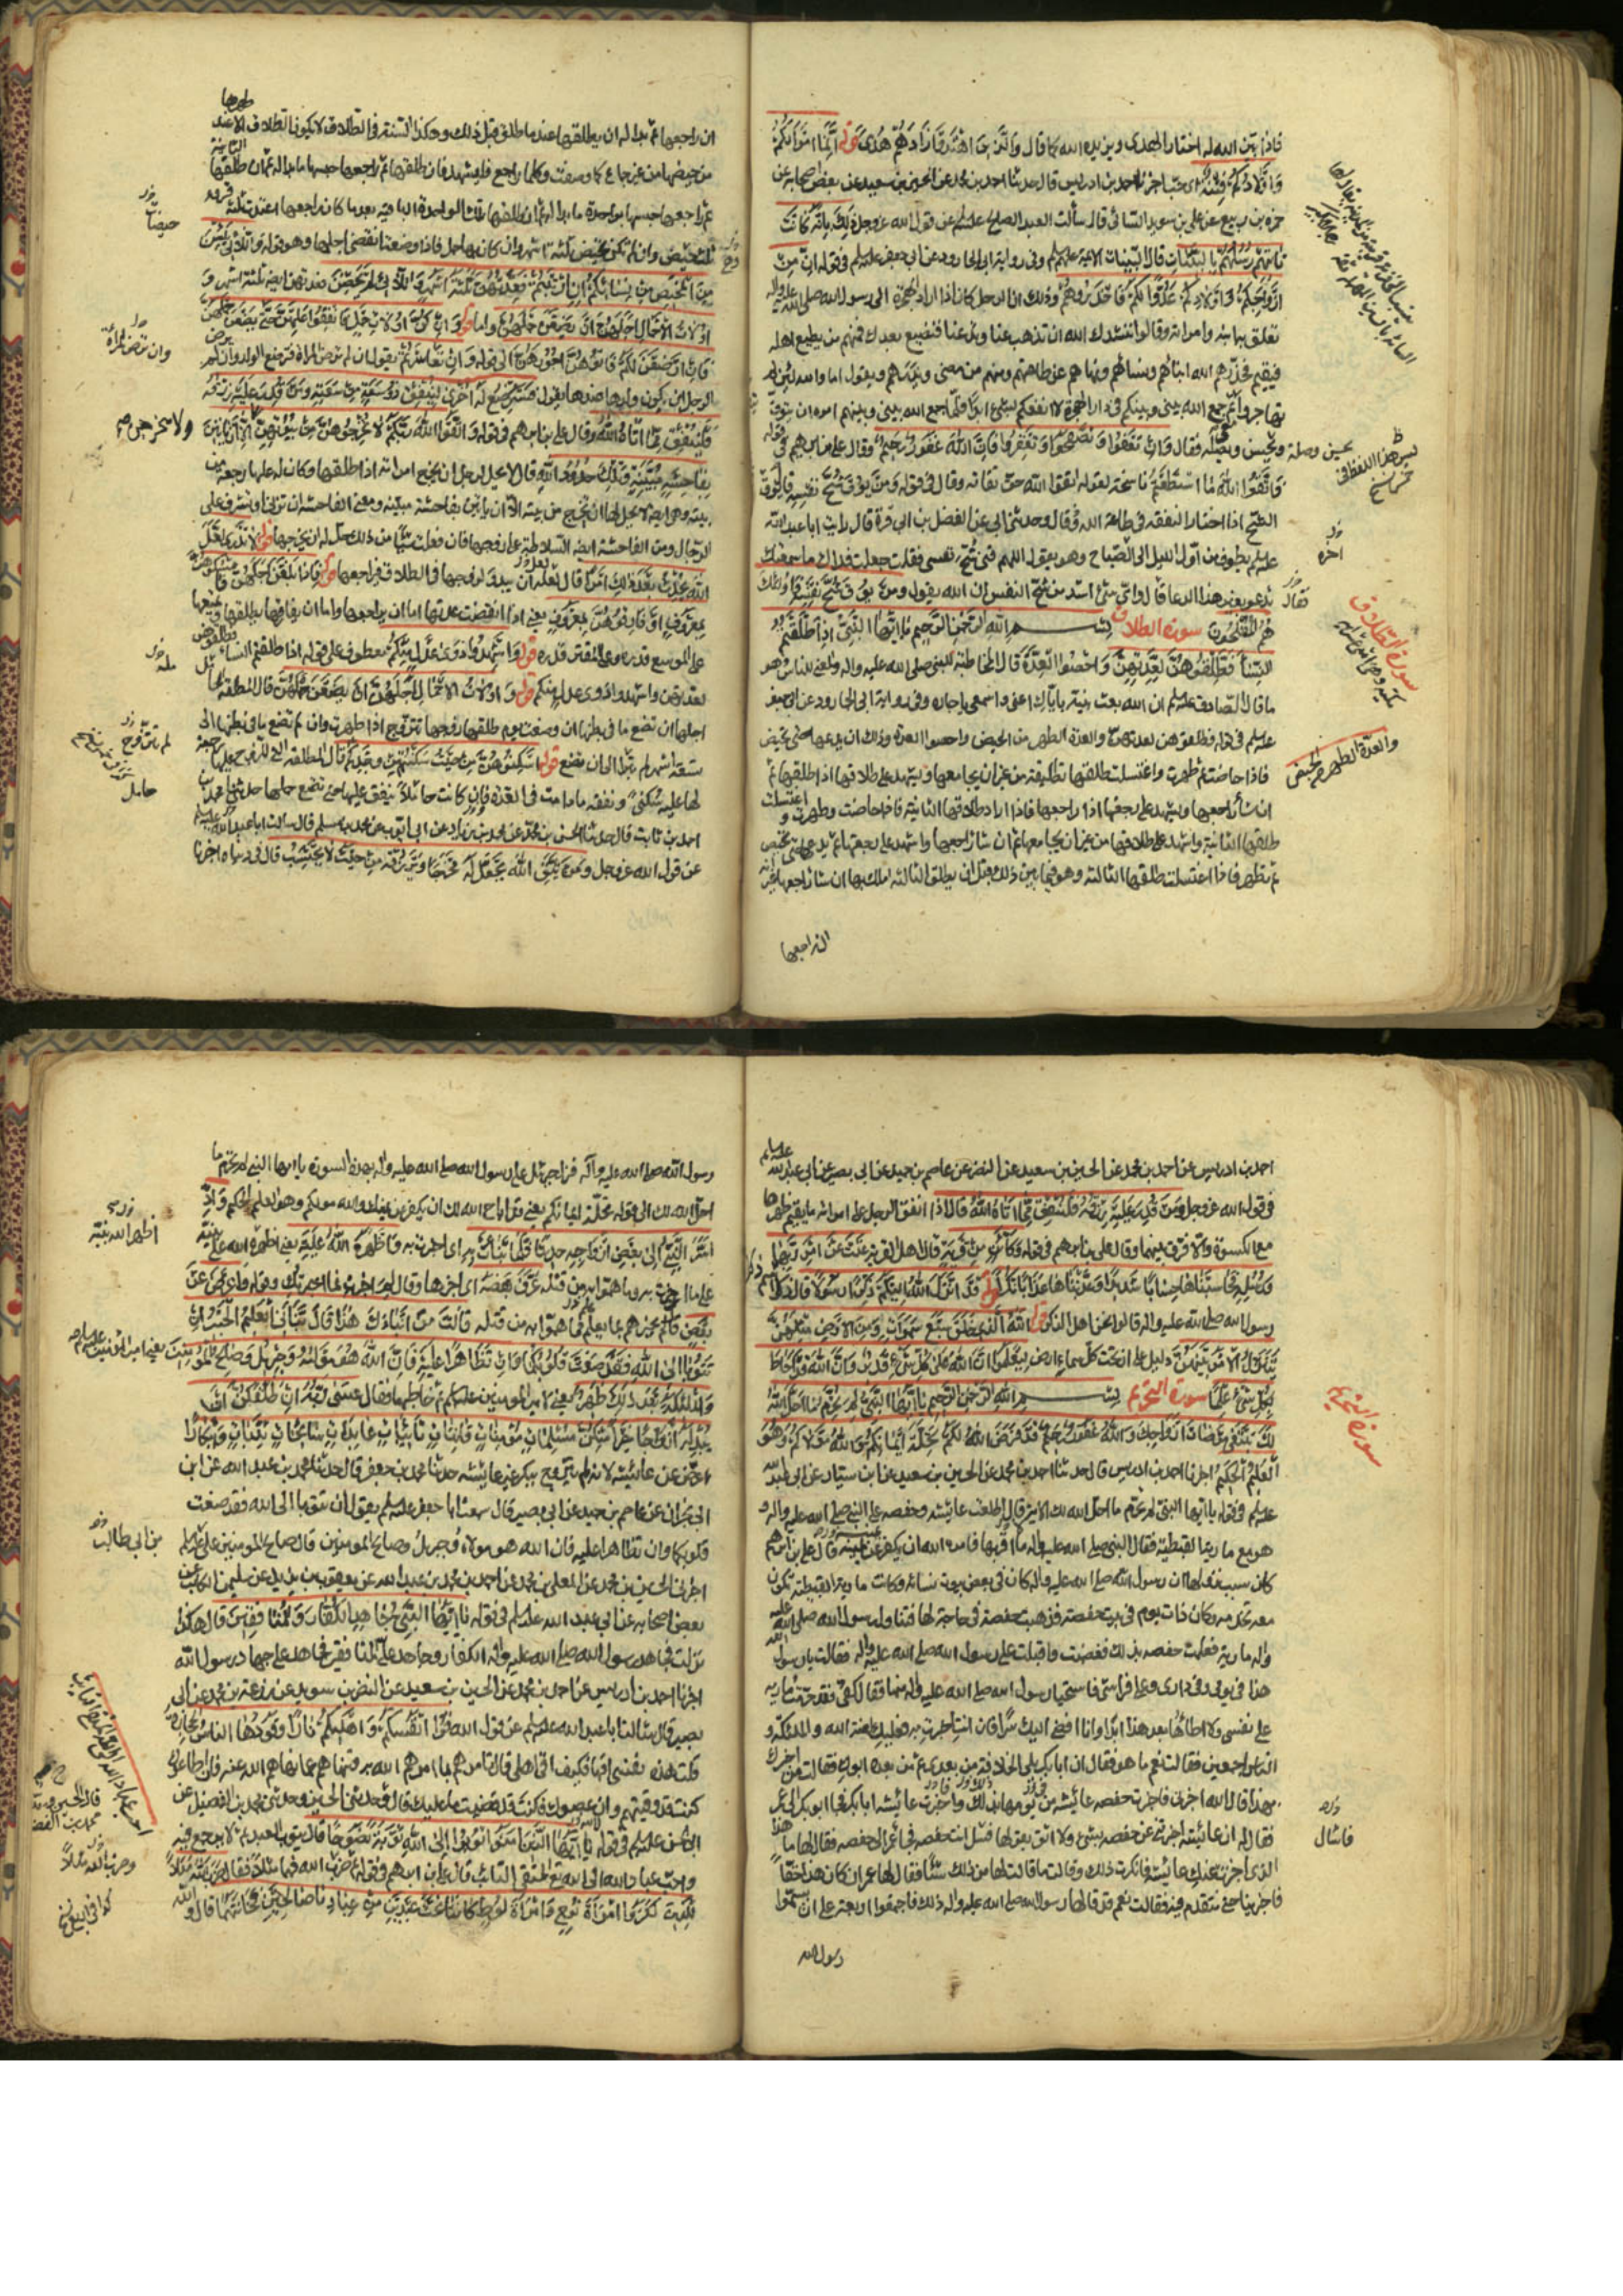 فاذا بين الله له اختار الهدى ويزيده الله كما قال والذين اهتدوا زادهم هدى قوله انما اموالكم
واولادكم فتنة اى حب اخبرنا احمد بن ادريس قال حدثنا احمد بن محمد عن الحسين بن سعيد عن بعض اصحابه عن
حمزة بن ربيع عن على بن سويد السائى قال سألت العبد الصالح عليه السلم عن قول الله عز وجل ذلك بانه كانت
تاتيهم رسلهم بالبينات قال البينات الائمة عليهم السلم وفى رواية ابى الجارود عن ابى جعفر عليه السلم فى قوله ان من
ازواجكم واولادكم عدوا لكم فاحذروهم وذلك ان الرجل كان اذا اراد الهجرة الى رسول الله صلى الله عليه واله
تعلق به ابنه وامراته وقالوا ننشدك الله ان تذهب عنا وتدعنا فنضيع بعدك فمنهم من يطيع اهله
فيقيم فحذرهم الله ابناءهم ونساءهم ونهاهم عن طاعتهم ومنهم من يمضى ويذرهم ويقول اما والله لئن لم
تهاجروا ثم جمع الله بينى وبينكم فى دار الهجرة لا انفعكم بشئ ابدا فلما جمع الله بينه وبينهم امره ان يتوق
بحسن وصلة فقال وان تعفوا وتصفحوا وتغفروا فان الله غفور رحيم وقال على بن ابرهيم فى قوله
فاتقوا الله ما استطعتم ناسخة لقوله اتقوا الله حق تقاته وقال فى قوله ومن يوق شح نفسه قال يوق
الشح اذا اختار النفقة فى طاعة الله قال وحدثنى ابى عن الفضل بن ابى قرة قال رايت ابا عبد الله
عليه السلم يطوف من اول الليل الى الصباح وهو يقول اللهم قنى شح نفسى فقلت جعلت فداك ما سمعتك
تدعو بغير هذا الدعا قال واى شئ اشد من شح النفس ان الله يقول ومن يوق شح نفسه فاولئك
هم المفلحون سورة الطلاق بسم الله الرحمن الرحيم يا ايها النبى اذا طلقتم
النساء فطلقوهن لعدتهن واحصوا العدة قال المخاطبة للنبى صلى الله عليه واله والمعنى للناس وهو
ما قال الصادق عليه السلم ان الله بعث نبيه باياك اعنى واسمعى يا جاره وفى رواية ابى الجارود عن ابى جعفر
عليه السلم فى قوله فطلقوهن لعدتهن والعدة الطهر من الحيض واحصوا العدة وذلك ان يدعها حتى تحيض
فاذا حاضت ثم طهرت واغتسلت طلقها تطليقة من غير ان يجامعها ويشهد على طلاقها اذا طلقها ثم
ان شاء راجعها ويشهد على رجعتها اذا راجعها فاذا اراد طلاقها الثانية فاذا حاضت وطهرت واغتسلت
طلقها الثانية واشهد على طلاقها من غير ان يجامعها ثم ان شاء راجعها واشهد على رجعتها ثم يدعها حتى تحيض
ثم تطهر فاذا اغتسلت طلقها الثالثة وهو فيما بين ذلك قبل ان يطلق الثالثة املك بها ان شاء راجعها غير انه
ان راجعها
سورة الطلاق
والعدة الطهر من الحيض
ان راجعها ثم بدا له ان يطلقها عند ما طلق قبل ذلك وهكذا السنة فى الطلاق لا يكون الطلاق الا عند طهرها
من حيضها من غير جماع كما وصفت وكلما راجع فليشهد فان طلقها ثم راجعها حبسها ما بدا له ثم ان طلقها الثانية
ثم راجعها حبسها بواحدة ما بدا له ثم ان طلقها تلك الواحدة الباقية بعد ما كان راجعها اعتدت ثلثة قروء
وان لم تكن تحيض ثلثة اشهر وان كان بها حمل فاذا وضعت انقضى اجلها وهو قوله واللائى يئسن
من المحيض من نسائكم ان ارتبتم فعدتهن ثلثة اشهر واللائى لم يحضن فعدتهن ايضا ثلثة اشهر و
اولات الاحمال اجلهن ان يضعن حملهن واما قوله وان كن اولات حمل فانفقوا عليهن حتى يضعن حملهن
فان ارضعن لكم فاتوهن اجورهن الى قوله وان تعاسرتم يقول ان لم ترض المراة فترضع الولد وان لم يرض
الرجل ان يكون ولدها عندها يقول فسترضع له اخرى لينفق ذو سعة من سعته ومن قدر عليه رزقه
فلينفق مما اتاه الله وقال على بن ابرهيم فى قوله واتقوا الله ربكم لا تخرجوهن من بيوتهن الا ان ياتين
بفاحشة مبينة وتلك حدود الله قال لا يحل لرجل ان يخرج امراته اذا طلقها وكان له عليها رجعة من
بيته وهى ايضا لا يحل لها ان تخرج من بيته الا ان ياتين بفاحشة مبينة ومعنى الفاحشة ان تزنى او تشرف على
الرجال ومن الفاحشة ايضا السلاطة على زوجها فان فعلت شيئا من ذلك حل له ان يخرجها قوله لا تدرى لعل
الله يحدث بعد ذلك امرا قال لعله ان يبدو لزوجها فى الطلاق فيراجعها قوله فاذا بلغن اجلهن فامسكوهن
بمعروف او فارقوهن بمعروف يعنى اذا انقضت عدتها اما ان يراجعها واما ان يفارقها يطلقها ويمتعها
على الموسع قدره وعلى المقتر قدره قوله واشهدوا ذوى عدل منكم معطوف على قوله اذا طلقتم النساء فطلقوهن
لعدتهن واشهدوا ذوى عدل منكم قوله واولات الاحمال اجلهن ان يضعن حملهن قال المطلقة الحامل
اجلها ان تضع ما فى بطنها ان وضعت يوم طلقها زوجها تتزوج اذا طهرت وان لم تضع ما فى بطنها الى
تسعة اشهر لم تبرا الى ان تضع قوله اسكنوهن من حيث سكنتم من وجدكم قال المطلقة التى للزوج عليها رجعة
لها عليه سكنى ونفقة ما دامت فى العدة فان كانت حاملا ينفق عليها حتى تضع حملها حدثنا محمد بن
احمد بن ثابت قال حدثنا الحسن بن محمد عن محمد بن زياد عن ابى ايوب عن محمد بن مسلم قال سالت ابا عبد الله عليه السلم
عن قول الله عز وجل ومن يتق الله يجعل له مخرجا ويرزقه من حيث لا يحتسب قال فى دنياه اخبرنا
وان لم ترض المراة
ولا يخرجن
حامل
احمد بن ادريس عن احمد بن محمد عن الحسين بن سعيد عن النضر عن عاصم بن حميد عن ابى بصير عن ابى عبد الله عليه السلم
فى قول الله عز وجل ومن قدر عليه رزقه فلينفق مما اتاه الله قال اذا انفق الرجل على امراته ما يقيم ظهرها
مع الكسوة والا فرق بينهما وقال على بن ابرهيم فى قوله وكاين من قرية قال اهل القرية عتت عن امر ربها
ورسله فحاسبناها حسابا شديدا وعذبناها عذابا نكرا قوله قد انزل الله اليكم ذكرا رسولا قال ذكر اسم
رسول الله صلى الله عليه واله قالوا نحن اهل الذكر قوله الله الذى خلق سبع سموات ومن الارض مثلهن
يتنزل الامر بينهن دليل على ان تحت كل سماء ارض ليعلموا ان الله على كل شئ قدير وان الله قد احاط
بكل شئ علما سورة التحريم بسم الله الرحمن الرحيم يا ايها النبى لم تحرم ما احل الله
لك تبتغى مرضات ازواجك والله غفور رحيم قد فرض الله لكم تحلة ايمانكم والله مولاكم وهو
العليم الحكيم اخبرنا احمد بن ادريس قال حدثنا احمد بن محمد عن الحسين بن سعيد عن ابن سيار عن ابى عبد الله
عليه السلم فى قوله يا ايها النبى لم تحرم ما احل الله لك الاية قال اطلعت عائشة وحفصة على النبى صلى الله عليه واله و
هو مع مارية القبطية فقال النبى صلى الله عليه واله والله ما اقربها فامره الله ان يكفر عن يمينه قال على بن ابرهيم
كان سبب نزولها ان رسول الله صلى الله عليه واله كان فى بعض بيوت نسائه وكانت مارية القبطية تكون
معه تخدمه وكان ذات يوم فى بيت حفصة فذهبت حفصة فى حاجة لها فتناول رسول الله صلى الله عليه
واله مارية فعلمت حفصة بذلك فغضبت واقبلت على رسول الله صلى الله عليه واله فقالت يا رسول الله
هذا فى يومى وفى دارى وعلى فراشى فاستحيا رسول الله صلى الله عليه واله منها فقال كفى فقد حرمت مارية
على نفسى ولا اطأها بعد هذا ابدا وانا افضى اليك سرا فان انت اخبرت به فعليك لعنة الله والملئكة و
الناس اجمعين فقالت نعم ما هو فقال ان ابا بكر يلى الخلافة من بعدى ثم من بعده ابوك فقالت من اخبرك
بهذا قال الله اخبرنى فاخبرت حفصة عائشة من يومها ذلك واخبرت عائشة ابا بكر فجاء ابو بكر الى عمر
فقال له ان عائشة اخبرتنى عن حفصة بشئ ولا اثق بقولها فسئل انت حفصة فجاء عمر الى حفصة فقال لها ما هذا
الذى اخبرت عنك عائشة فانكرت ذلك وقالت ما قالت لها من ذلك شيئا فقال لها عمر ان كان هذا حقا
فاخبرينا حتى نتقدم فيه فقالت نعم قد قال لى رسول الله صلى الله عليه واله ذلك فاجتمعوا اربعة على ان يسموا
رسول الله
سورة التحريم
رسول الله صلى الله عليه واله فنزل جبرئيل على رسول الله صلى الله عليه واله بهذه السورة يا ايها النبى لم تحرم ما
احل الله لك الى قوله تحلة ايمانكم يعنى قد اباح الله لك ان تكفر عن يمينك والله مولاكم وهو العليم الحكيم واذ
اسر النبى الى بعض ازواجه حديثا فلما نبات به اى اخبرت به واظهره الله عليه يعنى اظهر الله نبيه
على ما اخبرت به وما هموا به من قتله عرف بعضه اى اخبرها وقال لم اخبرت بما اخبرتك وقوله واعرض عن
بعض قال لم يخبرهم بما يعلم مما هموا به من قتله قالت من انباك هذا قال نبانى العليم الخبير ان
تتوبا الى الله فقد صغت قلوبكما وان تظاهرا عليه فان الله هو موليه وجبريل وصالح المؤمنين يعنى امير المؤمنين عليه السلم
والملئكة بعد ذلك ظهير يعنى لامير المؤمنين عليه السلم ثم خاطبها فقال عسى ربه ان طلقكن ان
يبدله ازواجا خيرا منكن مسلمات مؤمنات قانتات تائبات عابدات سائحات ثيبات وابكارا
عرض عن عائشة لانه لم يتزوج ببكر غير عائشة حدثنا محمد بن جعفر قال حدثنا محمد بن عبد الله عن ابن
ابى نجران عن عاصم بن حميد عن ابى بصير قال سمعت ابا جعفر عليه السلم يقول ان تتوبا الى الله فقد صغت
قلوبكما وان تظاهرا عليه فان الله هو مولاه وجبريل وصالح المؤمنين قال صالح المؤمنين على عليه السلم
اخبرنى الحسين بن محمد عن المعلى بن محمد عن احمد بن محمد بن عبد الله عن يعقوب بن يزيد عن سليمن الكاتب عن
بعض اصحابه عن ابى عبد الله عليه السلم فى قوله يا ايها النبى جاهد الكفار والمنافقين قال هكذا
نزلت فجاهد رسول الله صلى الله عليه واله الكفار وجاهد على المنافقين فجاهد على جهاد رسول الله
اخبرنا احمد بن ادريس عن احمد بن محمد عن الحسين بن سعيد عن النضر بن سويد عن زرعة بن محمد عن ابى
بصير قال سالت ابا عبد الله عليه السلم عن قول الله قوا انفسكم واهليكم نارا وقودها الناس والحجارة
قلت هذه نفسى اقيها فكيف اقى اهلى قال تامرهم بما امرهم الله به وتنهاهم عما نهاهم الله عنه فان اطاعوك
كنت قد وقيتهم وان عصوك فكنت قد قضيت ما عليك قال وحدثنى الحسين وحدثنى محمد بن الفضيل عن
ابى الحسن عليه السلم فى قوله يا ايها الذين امنوا توبوا الى الله توبة نصوحا قال يتوب العبد ثم لا يرجع فيه
واحب عباد الله الى الله المتقى التائب قال على بن ابرهيم فى قوله ضرب الله فيهما مثلا فقال ضرب الله مثلا
للذين كفروا امراة نوح وامراة لوط كانتا تحت عبدين من عبادنا صالحين فخانتاهما قال والله
بن ابى طالب